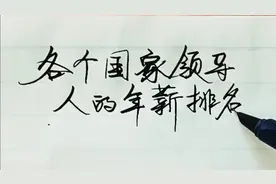 各个国家领导
人的年薪排名